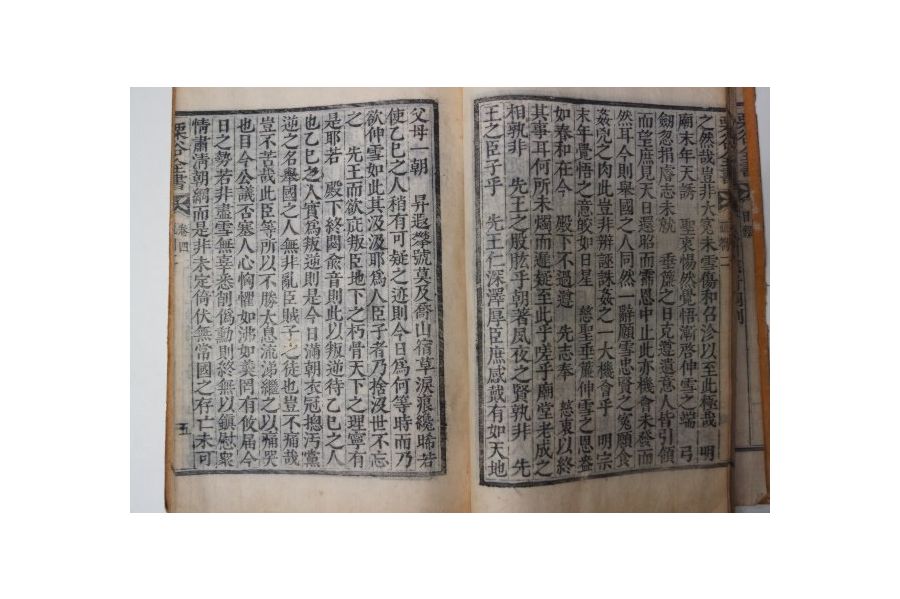 之然哉豈非大冤未雪傷和召沴以至此極哉 明
廟末年天誘 聖衷惕然覺悟漸啓伸雪之端 弓
劍忽捐志未 垂簾之遵遺意人皆引領
而望庶見天日還昭而霈恩中止此亦機會未發而
然耳今則舉國之人同然一辭願雪忠賢之冤願食
姦兇之肉此豈非辨誣誅姦之一大機會乎 明宗
末年覺悟之意皎如日星 慈聖垂簾伸雪之恩藹
如春和在今 殿下不過遵 先志奉 慈衷以終
其事耳何所未燭而遲疑至此乎嗟乎廟堂老成之
相孰非 先王之股肱乎朝著夙夜之賢孰非 先
王之臣子乎 先王仁深澤厚臣庶感戴有如天地
父母一朝 昇遐攀號莫及喬山宿草淚痕纔晞若
使乙巳之人稍有可疑之迹則今日爲何等時而乃
欲伸雪如此其汲汲耶爲人臣子者乃捨沒世不忘
之 先王而欲庇叛臣地下之朽骨天下之理寧有
是耶若 殿下終閟兪音則此以叛逆待乙巳之人
也乙巳之人實爲叛逆則是今日滿朝衣冠摠汚黨
逆之名舉國之人無非亂臣賊子之徒也豈不痛哉
豈不苦哉此臣等所以不勝太息流涕繼之以痛哭
也目今公議否塞人心恟懼如沸如羹罔有攸屆今
日之勢若非盡雪無辜悉削僞勳則終無以鎭慰衆
情肅清朝綱而是非未定倚伏無常國之存亡未可
栗谷全書 卷四 五